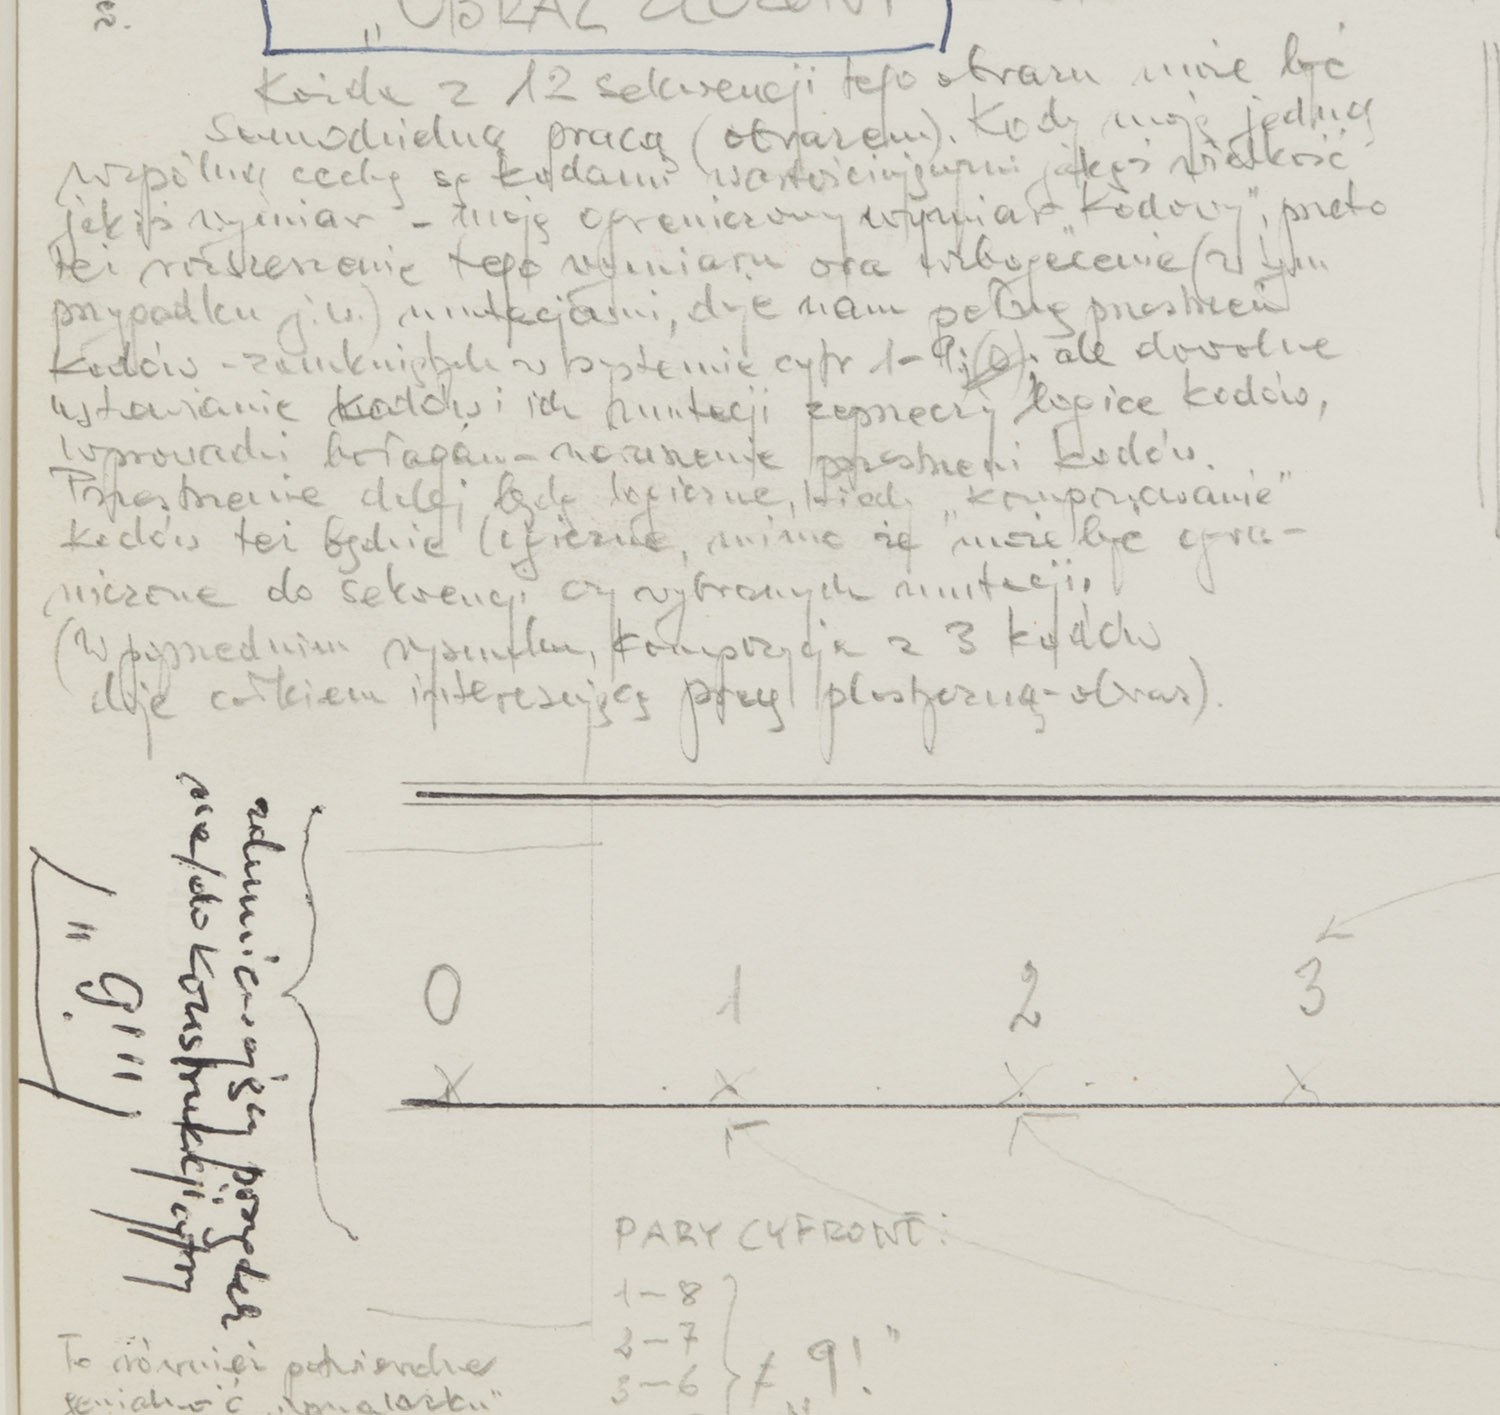 2.
„OBRAZ
Każda z 12 sekwencji tego obrazu może być
samodzielną pracą (obrazem). Kody mają jedną
wspólną cechę są kodami wartościującymi jakąś wielkość
jakiś wymiar - mają ograniczony wymiar „kodowy", przeto
też rozszerzenie tego wymiaru ora wzbogacenie (w tym
przypadku j.w.) mutacjami, daje nam pełną przestrzeń
kodów - zamkniętych w systemie cyfr 1-9; (0); ale dowolne
ustawianie kodów i ich mutacji zaprzeczy logice kodów,
wprowadzi bałagan - naruszenie przestrzeni kodów.
Przestrzenie dalej będą logiczne, kiedy „komponowanie"
kodów też będzie logiczne, mimo że może być ogra-
niczone do sekwencji czy wybranych mutacji.
(W poprzednim rysunku, kompozycja z 3 kodów
daje całkiem interesującą pracę płaszczyzną-obraz).
zdumiewający porządek
na/do konstrukcji cyfry
„9!"
0 1 2 3
x x x x
PARY CYFROWE:
1-8
2-7
3-6
„9!"
To również potwierdza
genialność